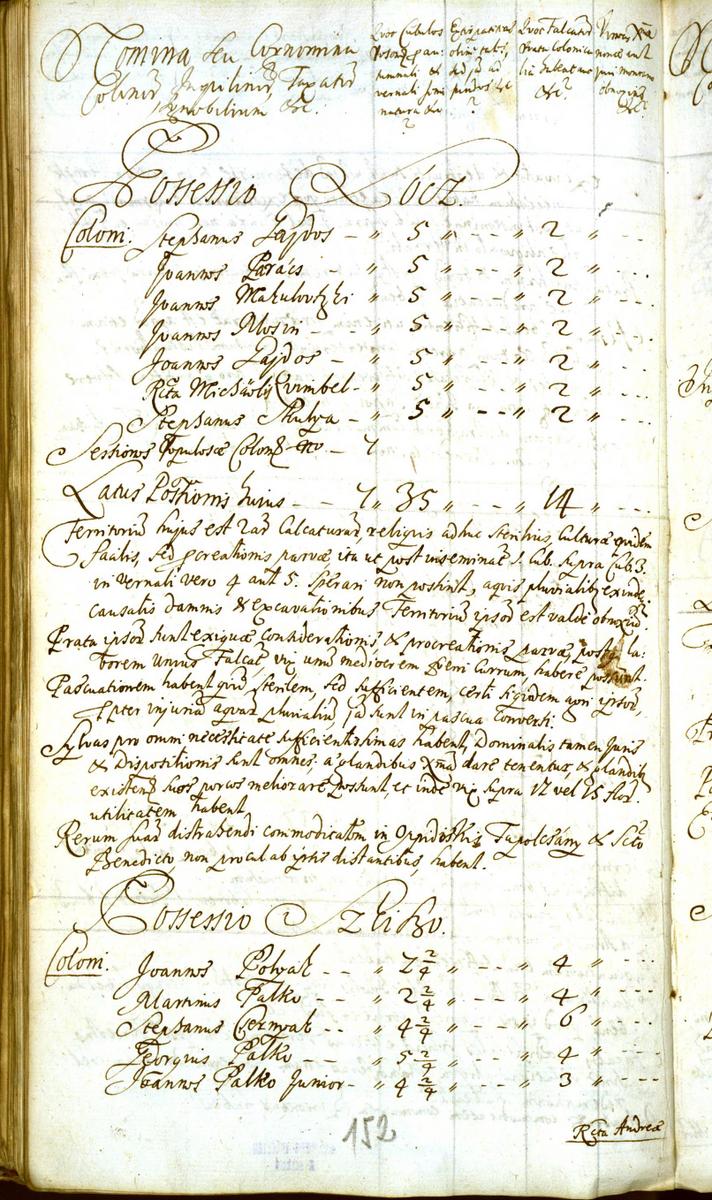 Nomina seu Cornomina
Colonor̃, Inquilinor̃, Taxator̃
Ignobilium &c.
Quot Cubulos
Posonien: pau:
tumnali &
vernali semi
natura &c
?
Extirpatitius
?
Quot Falcator̃
Prata Colonica
lia habent aut
&c?
Possessio Lócz.
Coloni. Stephanus Lajdos - " 5 " - - " 2 " - - -
Joannes Parács - " 5 " - - " 2 " - - -
Joannes " 5 " - - " 2 " - - -
Joannes Mosin - - " 5 " - - " 2 " - - -
Joannes Lajdos - " 5 " - - " 2 " - - -
Rcta Michaëlis Cvimbel - " 5 " - - " 2 " - - -
Stephanus Skulya - " 5 " - - " 2 " - - -
Sessiones Populosæ Colon - 7
Latus Possionis hujus - - 7 " 35 " - - " 14 " - - -
Territoriũ hujus est 2ar̃ Calcaturar̃, reliquis adhuc sterilius, Culturæ quidem
facilis, sed pcreationis parvæ, ita ut post inseminat 1. Cub. supra Cub 3.
in vernali vero 4 aut 5. sperari non possint, aquis pluvialib9 exinde
causatis damnis & excavationibus Territoriũ ipsor̃ est valde obnoxiũ.
Prata ipsor̃ sunt exiguæ considerationis & procreationis parvæ, post la:
borem unius Falcat, vix unũ mediocrem Fœni Currum, habere possunt.
Pascuationem habent sterilem, sed sufficientem, certi siquidem agri ipsor̃,
ppter injuriã aquar̃ pluvialiũ, jã sunt in pascua conversi.
Sylvas pro omni necessitate sufficientissimas habent, Dominalis tamen Juris
& Dispositionis sunt omnes, a glandibus Xmã dare tenentur, & glandib9
existen suos porcos meliorare possunt, ex inde vix supra 12 vel 15 flor.
utilitatem habent.
Rerum suar̃ distrahendi commoditatem in Oppidis Tapolcsány & Scto
Benedicto, non procul ab ipsis distantibus, habent.
Possessio Szliho.
Coloni. Joannes Polyak - - " 2 2/4 " - - " 4 " - - -
Martinus Palko - - " 2 2/4 " - - " 4 " - - -
Stephanus Csernyak - - " 4 2/4 " - - " 6 " - - -
Georgius Palko - - " 5 2/4 " - - " 4 " - - -
Joannes Palko Junior - " 4 2/4 " - - " 3 " - - -
152
Rcta Andreæ